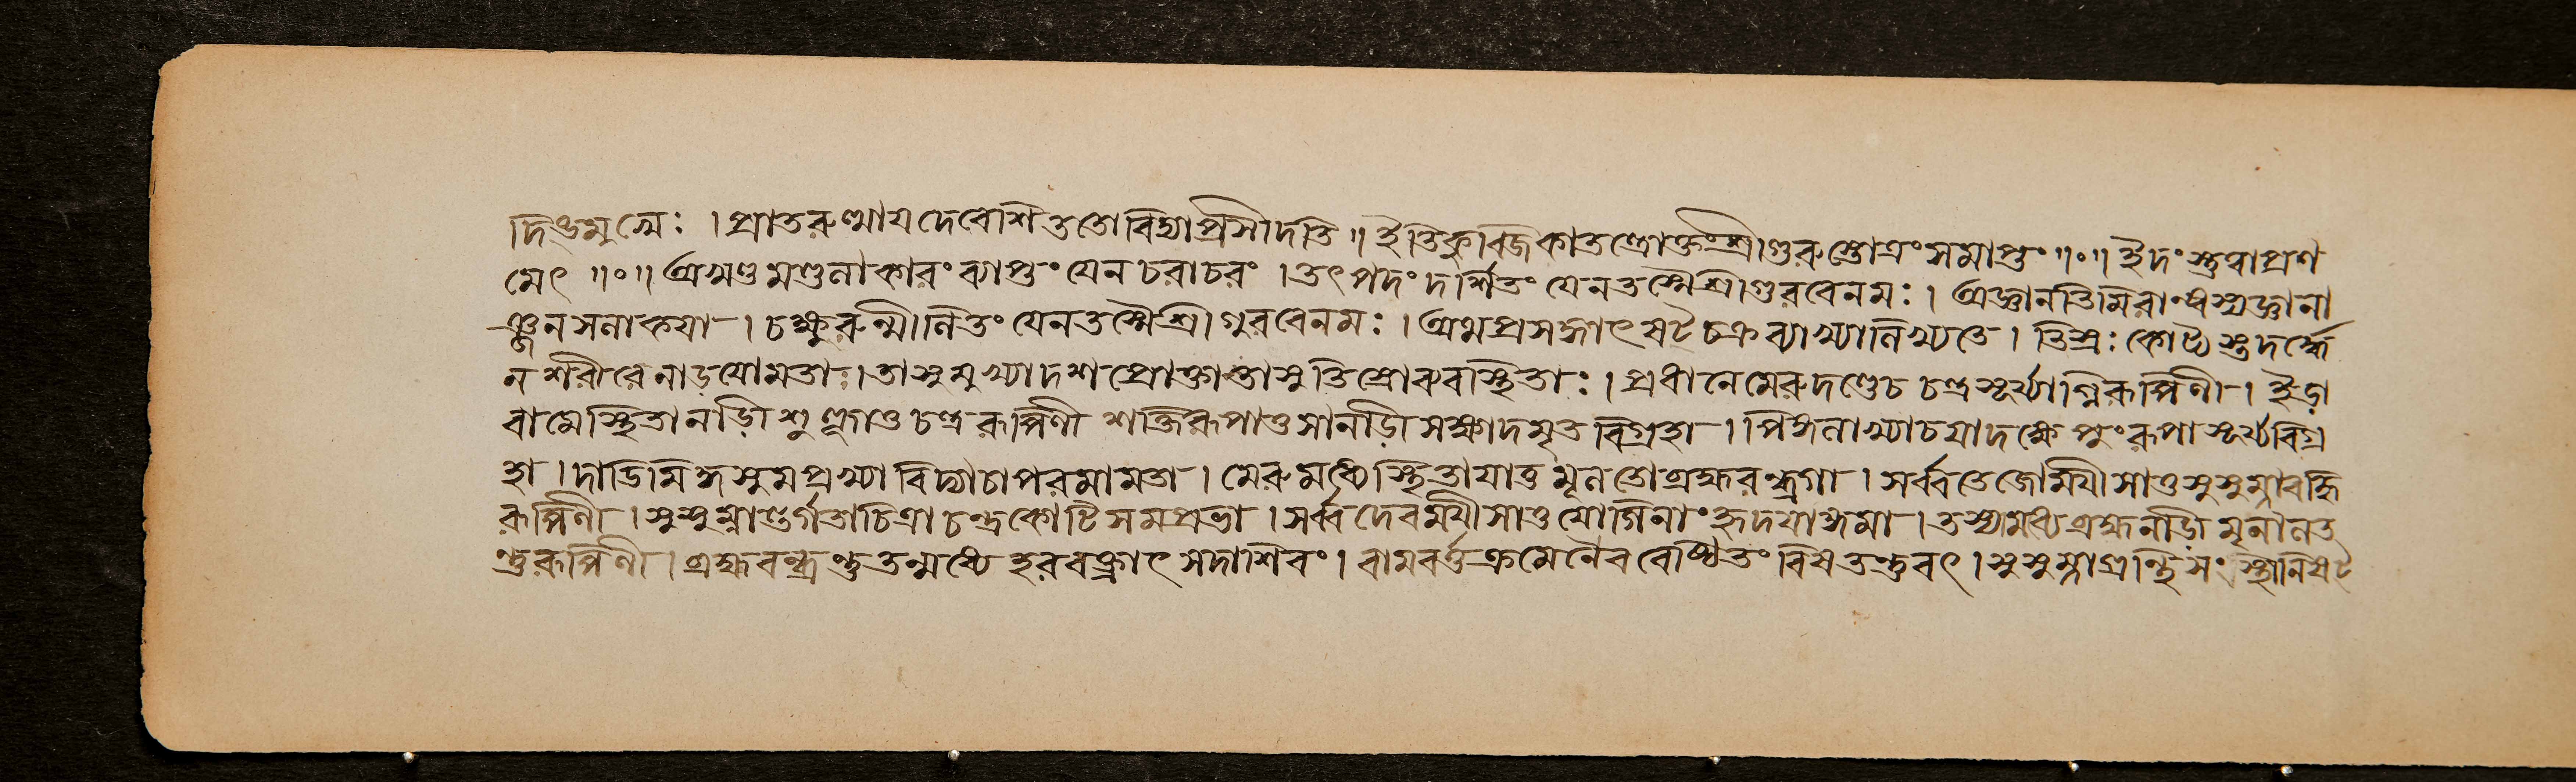 দিণ্ডমুন্মেঃ । প্রাতরুত্থায দেবেশি ততো বিদ্যা প্রসীদতি ॥ ইতি কুব্জিকাতন্ত্রোক্তং শ্রীগুরুস্তোত্রং সমাপ্তং ॥৹॥ ইদং স্তুত্বা প্রণ
মেৎ ॥৹॥ অখণ্ডমণ্ডলাকারং ব্যাপ্তং যেন চরাচরং । তৎ পদং দর্শিতং যেন তস্মৈ শ্রীগুরবে নমঃ । অজ্ঞানতিমিরান্ধস্য জ্ঞানা
ঞ্জনসলাকযা । চক্ষুরুন্মীলিতং যেন তস্মৈ শ্রীগুরবে নমঃ । অথ প্রসঙ্গাৎ ষট্চক্রব্যাখ্যা লিখ্যতে । তিস্রঃ কোট্যস্তদর্দ্ধে
ন শরীরে নাড়যো মতাঃ । তাসু মুখ্যা দশ প্রোক্তাস্তাসু তিস্রো ব্যবস্থিতাঃ । প্রধানে মেরুদণ্ডে চ চন্দ্রসূর্য্যাগ্নিরূপিণী । ইড়া
বামে স্থিতা নাড়ী শুক্লা তু চন্দ্ররূপিণী শক্তিরূপা তু সা নাড়ী সাক্ষাদমৃতবিগ্রহা । পিঙ্গলাখ্যা চ যা দক্ষে পুংরূপা সূর্য্যবিগ্র
হা । দাড়িমিকুসুমপ্রখ্যা বিদ্যা চাপরমা মতা । মেরুমধ্যে স্থিতা যা তু মূলতো ব্রহ্মরন্ধ্রগা । সর্ব্বতেজোময়ী সা তু সুসুম্না বহ্নি
রূপিণী । সুসুম্নান্তর্গতা চিত্রা চন্দ্রকোটিসমপ্রভা । সর্ব্বদেবময়ী সা তু যোগিনাং হৃদযাঙ্গমা । তস্যা মধ্যে ব্রহ্মনাড়ী মৃনালত
ন্তুরূপিণী । ব্রহ্মরন্ধ্রন্তু তন্মধ্যে হরবক্ত্রাৎ সদাশিবং । বামাবর্ত্তক্রমেনৈব বেষ্টিতং বিসতন্তুবৎ । সুসুম্নাগ্রন্থিসংস্থানি ষট